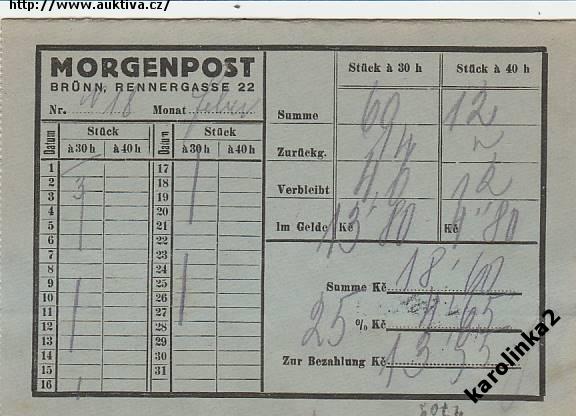 http://www.auktiva.cz/
MORGENPOST
BRÜNN, RENNERGASSE 22
Nr. 18 Monat
Datum Stück Datum Stück
à 30 h à 40 h à 30 h à 40 h
1 17
2 3 18
3 19
4 20
5 21
6 22
7 23
8 24
9 25
10 26
11 27
12 28
13 29
14 30
15 31
16
Stück à 30 h Stück à 40 h
Summe 60 12
Zurückg. 14
Verbleibt 12
Im Gelde Kč 13'80 Kč 4'80
Summe Kč 18'60
25 % Kč 4'65
Zur Bezahlung Kč 13'95
karolinka2